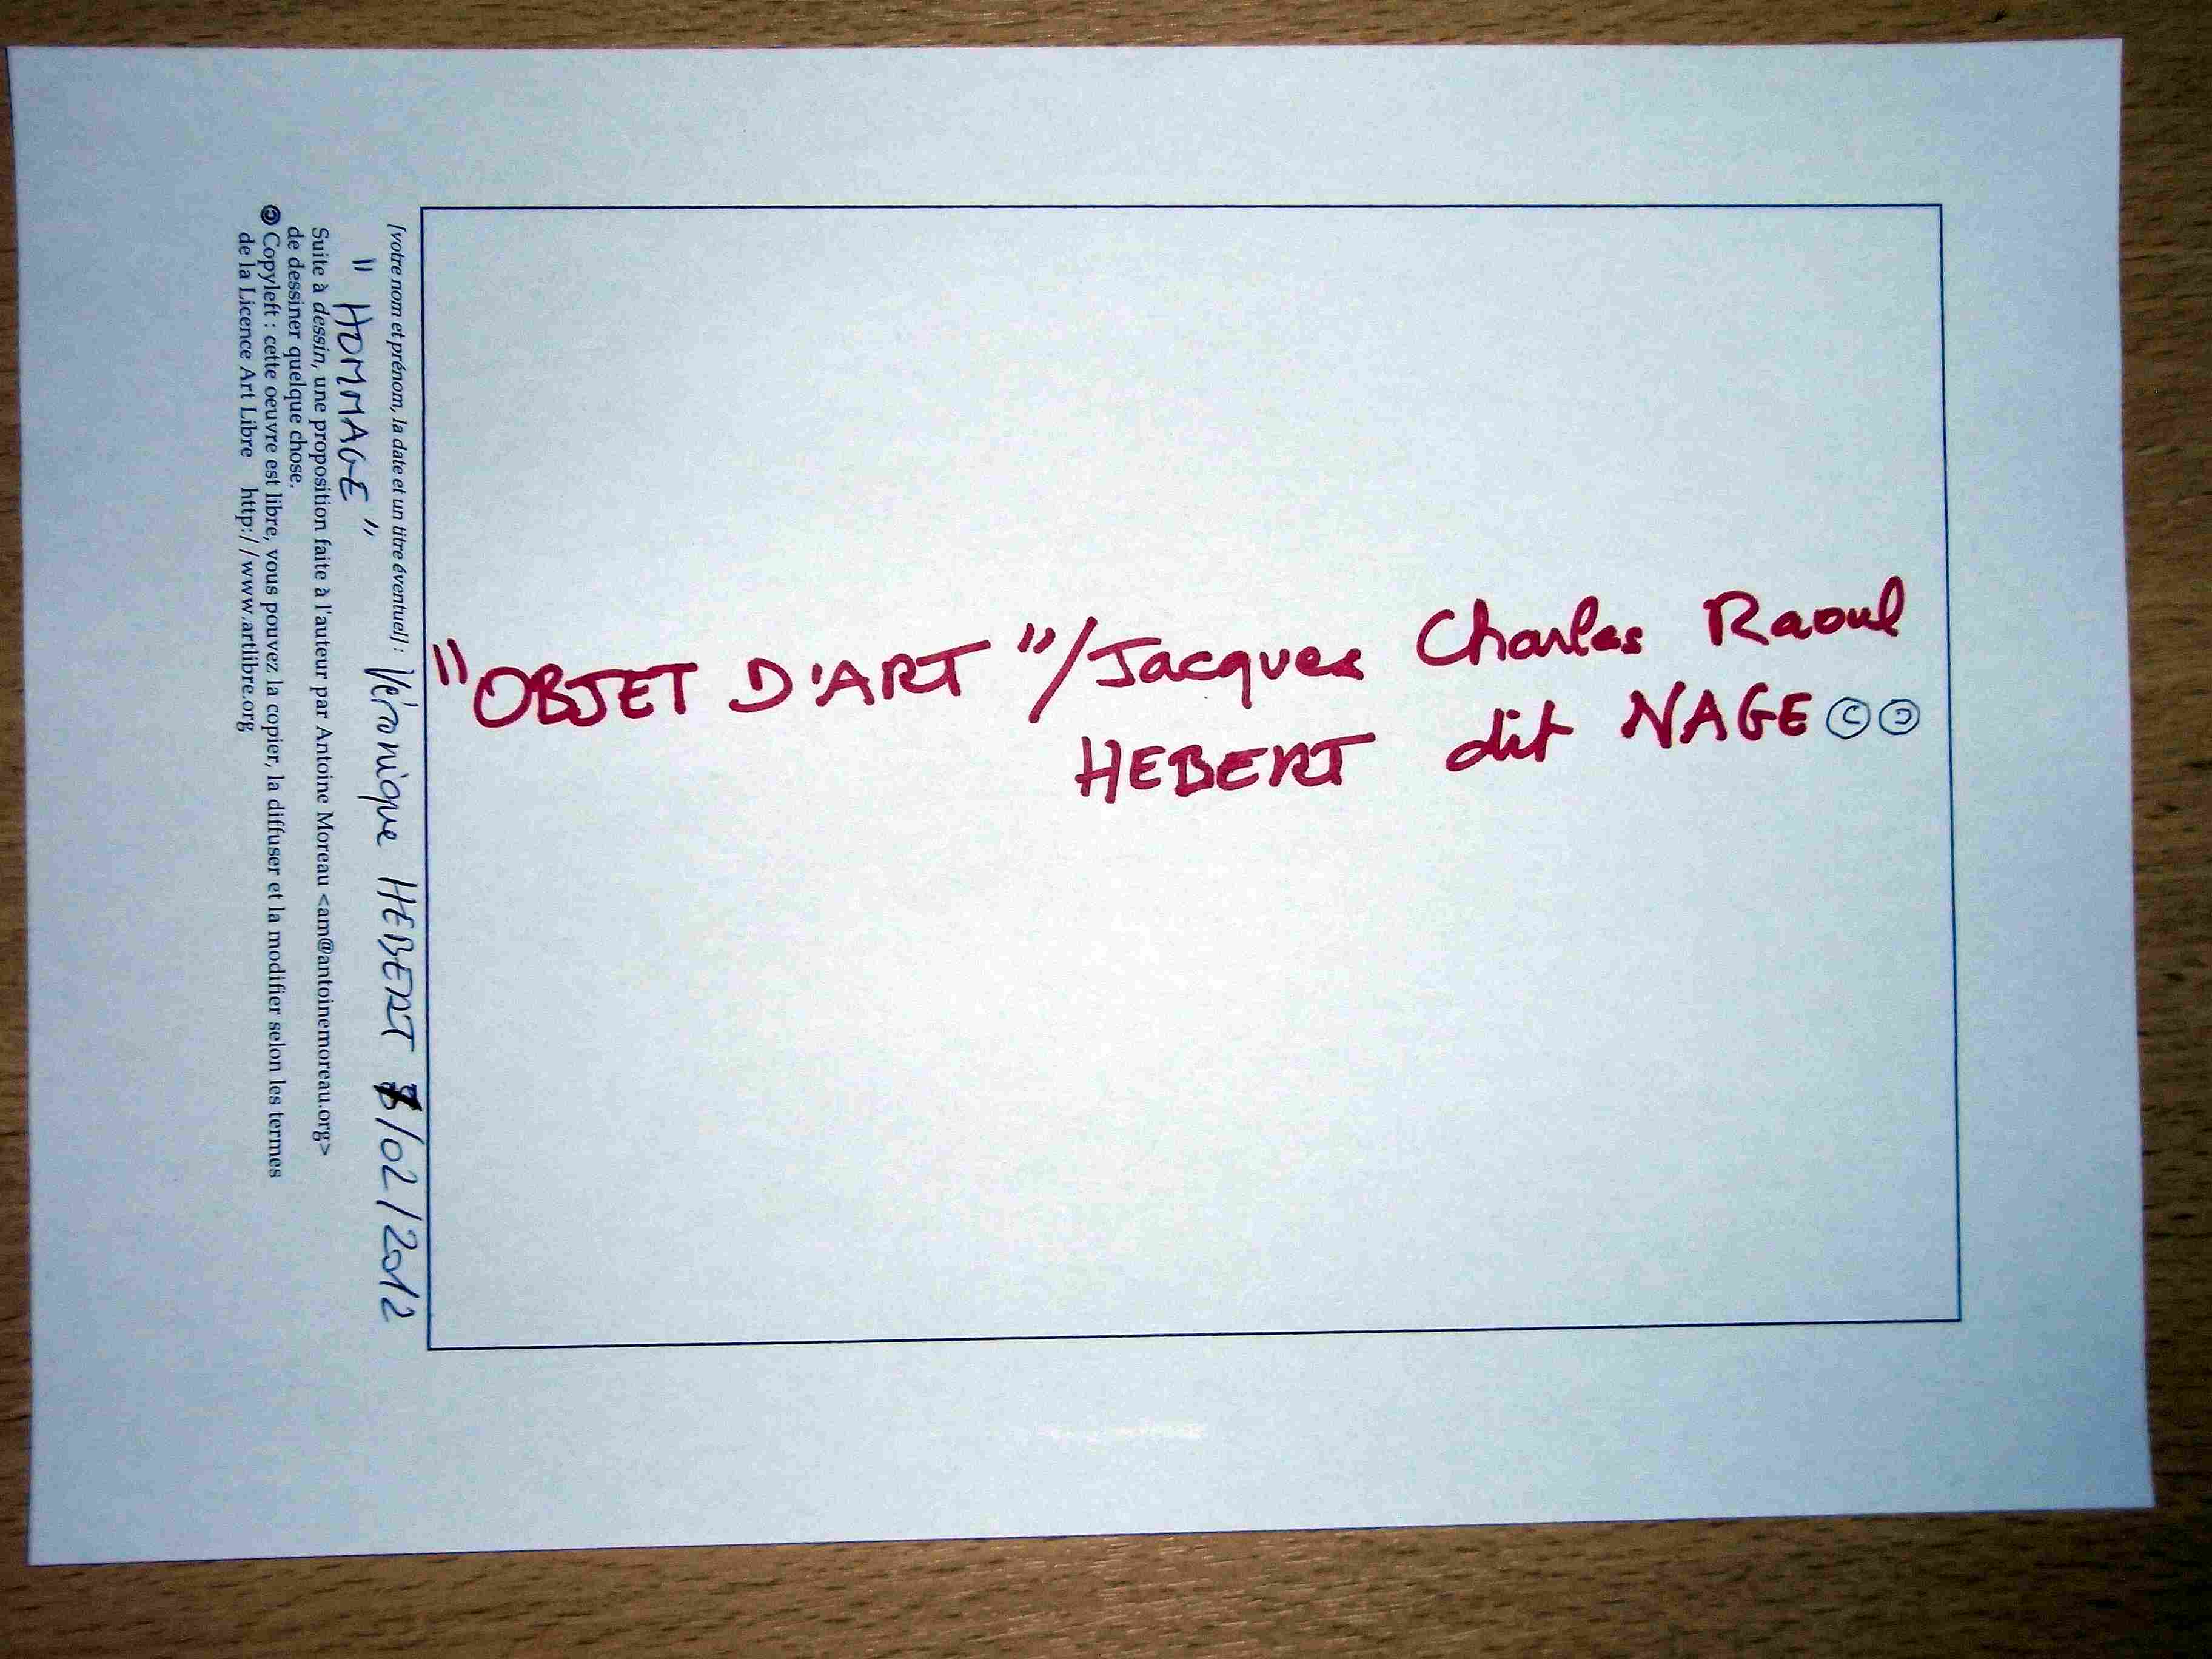 "OBJET D'ART"/Jacques Charles Raoul
HEBERT dit NAGE © 🄯
[votre nom et prénom, la date et un titre éventuel] : Véronique HEBERT /02/2012
"HOMMAGE"
Suite à dessin, une proposition faite à l'auteur par Antoine Moreau <am@antoinemoreau.org>
de dessiner quelque chose.
🄯 Copyleft : cette oeuvre est libre, vous pouvez la copier, la diffuser et la modifier selon les termes
de la Licence Art Libre http://www.artlibre.org